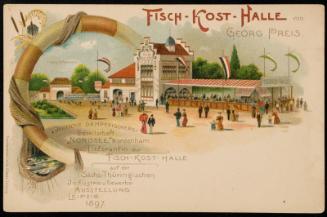 FISCH-KOST-HALLE von
GEORG PREIS
Deutsche Dampffischerei
Gesellschaft
"NORDSEE" Nordenham
Lieferantin der
FISCH-KOST-HALLE
auf der
Sächs-Thüringischen
Industrie u. Gewerbe
AUSSTELLUNG
LEIPZIG
1897.